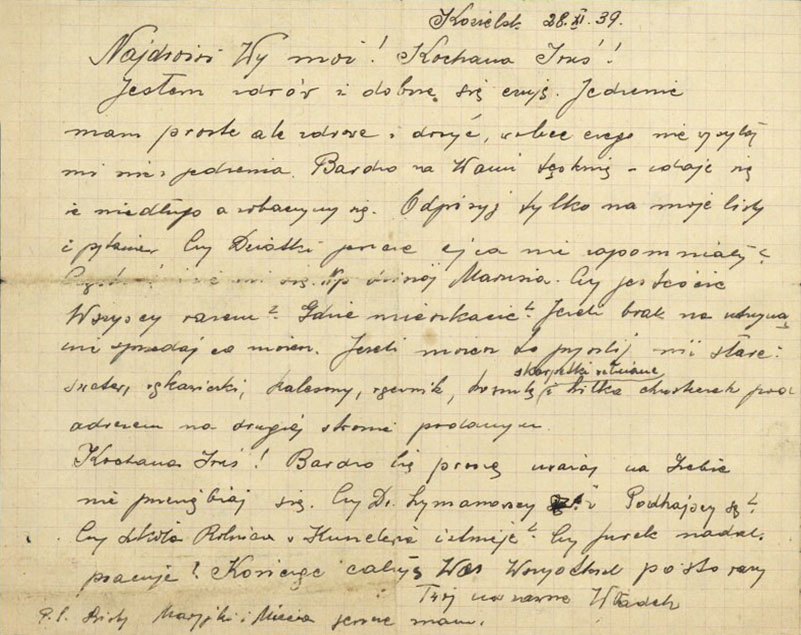 Kozielsk 28.XI.39.
Najdrożsi Wy moi! Kochana Iruś!
Jestem zdrów i dobrze się czuję. Jedzenie
mam proste ale zdrowe i dosyć, wobec czego nie wysyłaj
mi nic z jedzenia. Bardzo za Wami tęsknię – zdaje się
że niedługo zobaczymy się. Odpisuj tylko na moje listy
i pytania. Czy Dziatki jeszcze ojca nie zapomniały?
mi się Marusia. Czy jesteście
Wszyscy razem? Gdzie mieszkacie? Jeżeli brak na utrzyma
nie sprzedaj co możesz. Jeżeli możesz to przyślij mi stare:
skarpetki wełniane
sweter, rękawiczki, kalesony, ręcznik, i kilka chusteczek pod
adresem na drugiej stronie podanym.
Kochana Iruś! Bardzo Cię proszę uważaj na Siebie
nie przeziębiaj się. Czy Dr. Szymanowscy i Podhajscy są?
Czy szkoła Rolnicza istnieje? Czy Jurek nadal
pracuje? Kończąc całuję Was Wszystkich po sto razy
Twój na zawsze Władek
P.S. Maryjki i Miecia jeszcze mam.